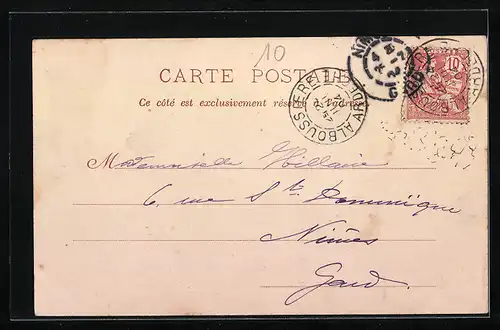 10
CARTE POSTALE
Ce côté est exclusivement réservé à l'adresse
ALBOUSSIERE ARDECHE
NIMES
10
Mademoiselle Hillaire
6, rue Ste Dominique
Nîmes
Gard.